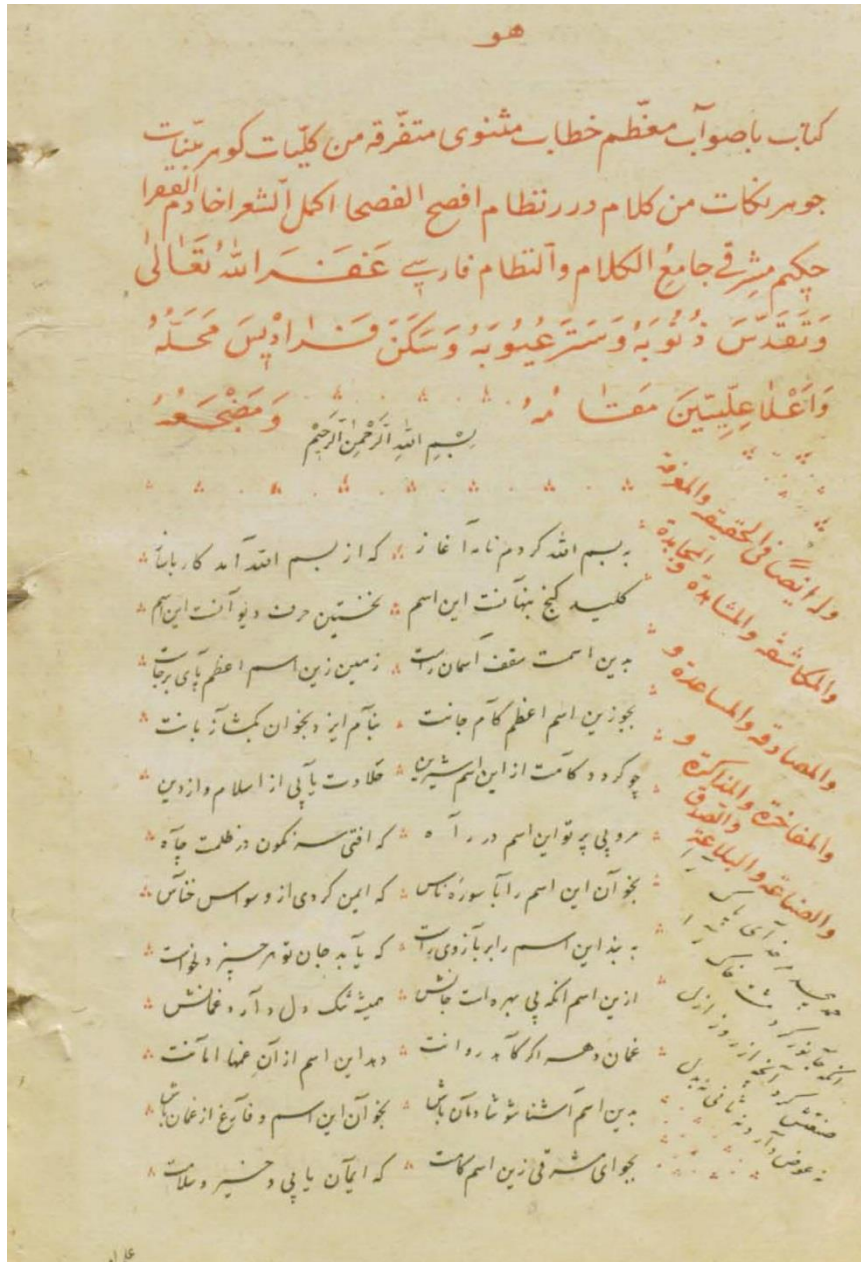 هو
کتاب باصوآب معظّم خطاب مثنوی متفّرقه من کلیّات کوهر بیّنات
جوهر نکات من کلام درر نظام افصح الفصحا اکمل الشعرا خادم الفقرا
حکیم مشرقی جامع الکلام والنظام فارسی غفر الله تعالی
وتقدّس ذنوبه وستر عیوبه وسکن فرادیس محلّه
واعلا علیّین مقامه ومضجعه
بسم الله الرحمن الرحیم
به بسم الله کردم نامه آغاز که از بسم الله آمد کار باساز
کلید کنج پنهآنست این اسم نخستین حرف دیوآنست این اسم
بدین اسمت سقف آسمان راست زمین زین اسم اعظم پآی برجاست
بجو زین اسم اعظم کآم جانت بنآم ایزد بخوان بکشآ زبانت
چو کردد کآمت از این اسم شیرین حلاوت یآبی از اسلام واز دین
مرو بی پرتو این اسم در رآه که افتی سرنکون در ظلمت چآه
بخوآن این اسم را بآ سوره ناس که ایمن کردی از وسواس خنّآس
به بند این اسم را بر بآزوی راست که یآبد جان تو هر چیز دلخواست
از این اسم انکه بی بهره است جانش همیشه تنک دل دآرد غمانش
غمان دهر اکر کآهد روانت دهد این اسم از آن غمها امآنت
بدین اسم آشنا شو شادمآن باش بخوآن این اسم و فآرغ از غمان باش
بجو ای مشرقی زین اسم کامت که ایمآن یابی و خیر و سلامت
وله ایضًا فی الحقیقه والمعرفة
والمکاشفه والمشاهدة والمجاهدة
والمصادقه والمساعدة و
والمفاخرة والمذاکرة و
والصناعه والبلاغة والصدق
خدآی پاک رآ
انکه جآنور کرد مشت خاک رآ
صنعتش کرد آنچه از روز ازل
نه عوض دآرد نه ثانی نه بدل